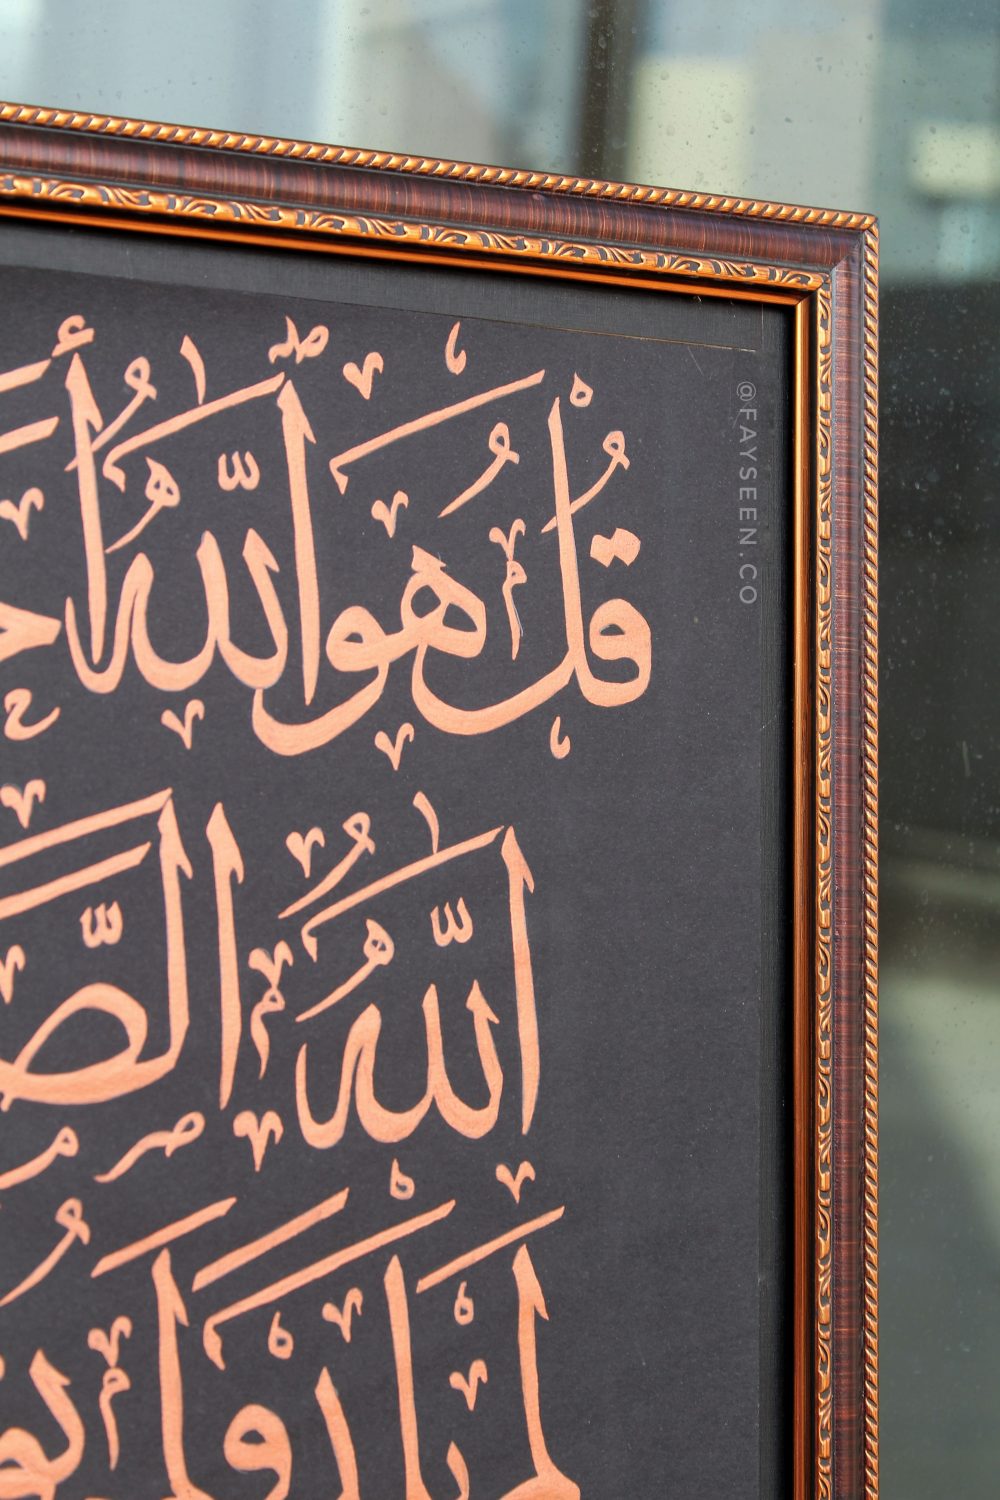 قُلْ هُوَ اللّٰهُ أَحَ
اللّٰهُ الصَّ
لَمْ يَلِدْ وَلَمْ يُو
@FAYSEEN.CO